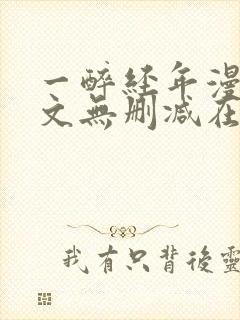 一醉经年漫
文無刪减在
我有只背後靈